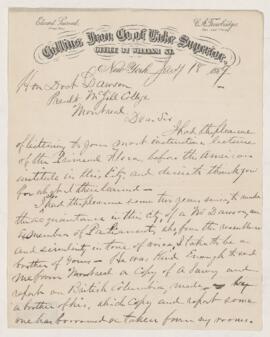 Edward Samuel,
C. A. Trowbridge,
Collins Iron Co. of Lake Superior,
OFFICE 50 WILLIAM ST.
New York July 18 1889
Hon Doct Dawson
Presdt McGill College
Montreal
Dear Sir
I had the pleasure
of listening to your most instructive lecture
of the Primeval Flora before the American
institute in this City and desire to thank you
for what I then learned —
I had the pleasure some two years since to make
the acquaintance in this city of a Mr Dawson, an
member of Parliament, who from the resemblance
and similarity in tone of voice, I take to be a
brother of yours — He was kind enough to send
me from Montreal a copy of a Survey and
report on British Columbia, made by
a brother of his, which copy and report some
one has borrowed or taken from my rooms.